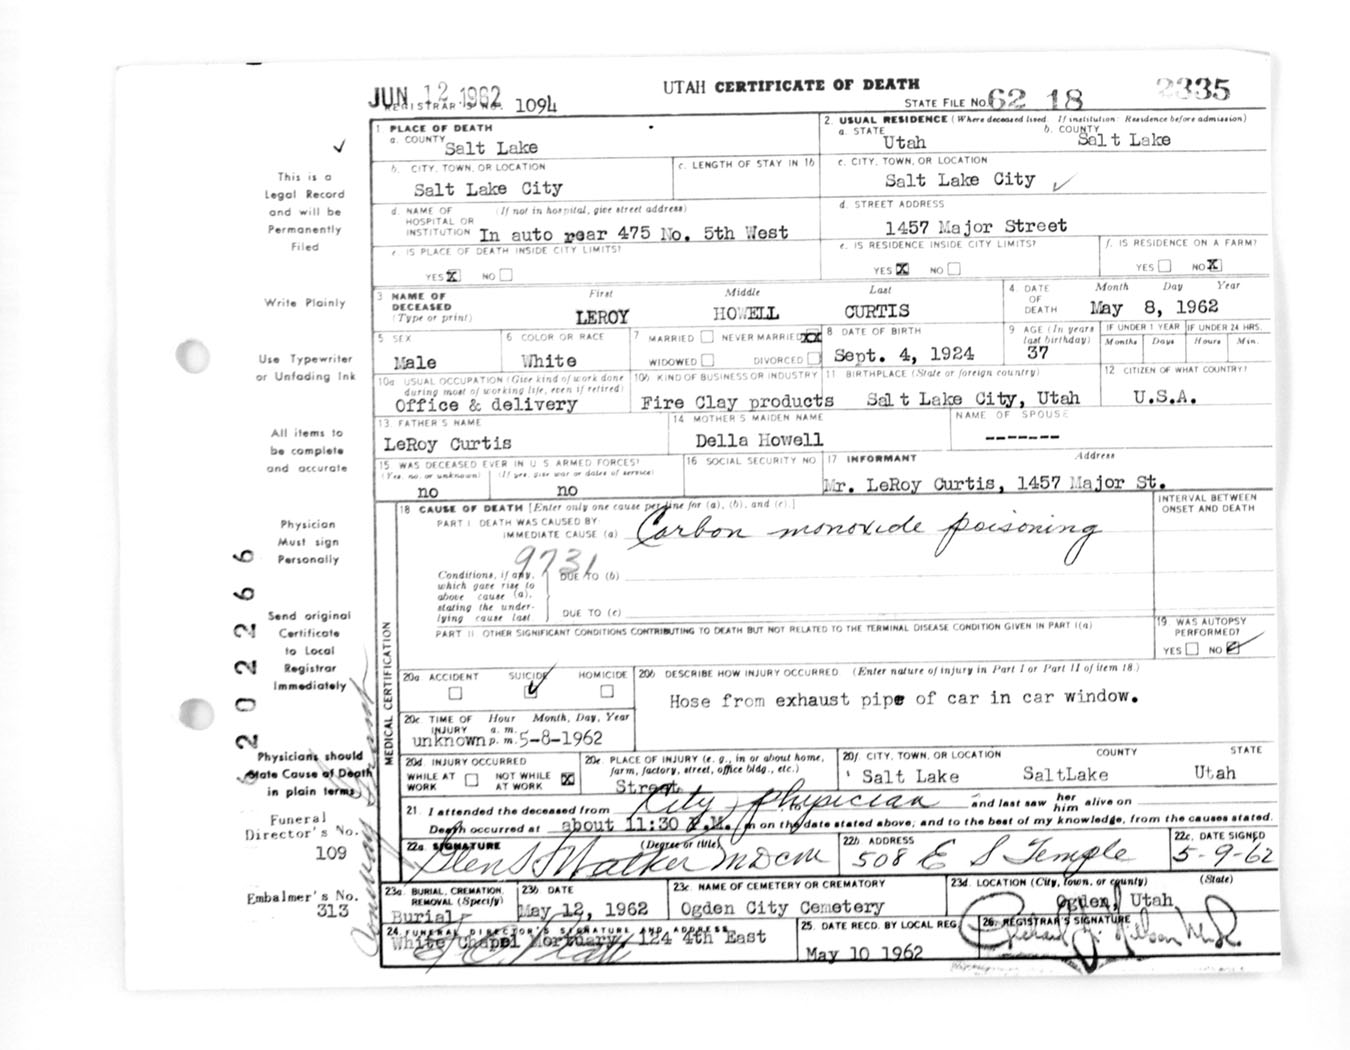 JUN 12 1962
UTAH CERTIFICATE OF DEATH
2335
REGISTRAR'S NO. 1094
STATE FILE NO. 62 18
1 PLACE OF DEATH
a. COUNTY Salt Lake
2. USUAL RESIDENCE (Where deceased lived. If institution: Residence before admission)
a. STATE Utah b. COUNTY Salt Lake
b. CITY, TOWN, OR LOCATION Salt Lake City
c. LENGTH OF STAY IN 1b
c. CITY, TOWN, OR LOCATION
Salt Lake City
d. NAME OF HOSPITAL OR INSTITUTION (If not in hospital, give street address)
In auto rear 475 No. 5th West
d. STREET ADDRESS
1457 Major Street
e. IS PLACE OF DEATH INSIDE CITY LIMITS?
YES X NO
e. IS RESIDENCE INSIDE CITY LIMITS?
YES X NO
f. IS RESIDENCE ON A FARM?
YES NO X
3 NAME OF DECEASED (Type or print)
First Middle Last
LEROY HOWELL CURTIS
4. DATE OF DEATH Month Day Year
May 8, 1962
5 SEX
Male
6 COLOR OR RACE
White
7 MARRIED NEVER MARRIED XX
WIDOWED DIVORCED
8 DATE OF BIRTH
Sept. 4, 1924
9 AGE (In years last birthday)
37
IF UNDER 1 YEAR Months Days
IF UNDER 24 HRS. Hours Min.
10a USUAL OCCUPATION (Give kind of work done during most of working life, even if retired)
Office & delivery
10b KIND OF BUSINESS OR INDUSTRY
Fire Clay products
11 BIRTHPLACE (State or foreign country)
Salt Lake City, Utah
12 CITIZEN OF WHAT COUNTRY?
U.S.A.
13. FATHER'S NAME
LeRoy Curtis
14 MOTHER'S MAIDEN NAME
Della Howell
NAME OF SPOUSE
-------
15 WAS DECEASED EVER IN U S ARMED FORCES?
(Yes, no, or unknown) (If yes, give war or dates of service)
no no
16 SOCIAL SECURITY NO
17 INFORMANT Address
Mr. LeRoy Curtis, 1457 Major St.
18 CAUSE OF DEATH [Enter only one cause per line for (a), (b), and (c).]
INTERVAL BETWEEN ONSET AND DEATH
PART I. DEATH WAS CAUSED BY:
IMMEDIATE CAUSE (a) Carbon monoxide poisoning
9731
Conditions, if any, which gave rise to above cause (a), stating the underlying cause last
DUE TO (b)
DUE TO (c)
PART II OTHER SIGNIFICANT CONDITIONS CONTRIBUTING TO DEATH BUT NOT RELATED TO THE TERMINAL DISEASE CONDITION GIVEN IN PART I(a)
19 WAS AUTOPSY PERFORMED?
YES NO
MEDICAL CERTIFICATION
20a. ACCIDENT SUICIDE HOMICIDE
20b DESCRIBE HOW INJURY OCCURRED. (Enter nature of injury in Part I or Part II of item 18.)
Hose from exhaust pipe of car in car window.
20c TIME OF INJURY Hour a. m. p. m. Month, Day, Year
unknown 5-8-1962
20d. INJURY OCCURRED
WHILE AT WORK NOT WHILE AT WORK X
20e. PLACE OF INJURY (e. g., in or about home, farm, factory, street, office bldg., etc.)
Street
20f. CITY, TOWN, OR LOCATION COUNTY STATE
Salt Lake SaltLake Utah
21. I attended the deceased from City physician to and last saw her him alive on
Death occurred at about 11:30 P.M. m on the date stated above; and to the best of my knowledge, from the causes stated.
22a SIGNATURE (Degree or title)
Glen S Walker MD CM
22b ADDRESS
508 E S Temple
22c. DATE SIGNED
5-9-62
23a. BURIAL, CREMATION, REMOVAL (Specify)
Burial
23b DATE
May 12, 1962
23c. NAME OF CEMETERY OR CREMATORY
Ogden City Cemetery
23d. LOCATION (City, town, or county) (State)
Ogden, Utah
24. FUNERAL DIRECTOR'S SIGNATURE AND ADDRESS
White Chapel Mortuary, 124 4th East
25. DATE RECD. BY LOCAL REG.
May 10 1962
26. REGISTRAR'S SIGNATURE
This is a
Legal Record
and will be
Permanently
Filed
Write Plainly
Use Typewriter
or Unfading Ink
All items to
be complete
and accurate
Physician
Must sign
Personally
Send original
Certificate
to Local
Registrar
Immediately
Physicians should
State Cause of Death
in plain terms
Funeral
Director's No.
109
Embalmer's No.
313
2 02266